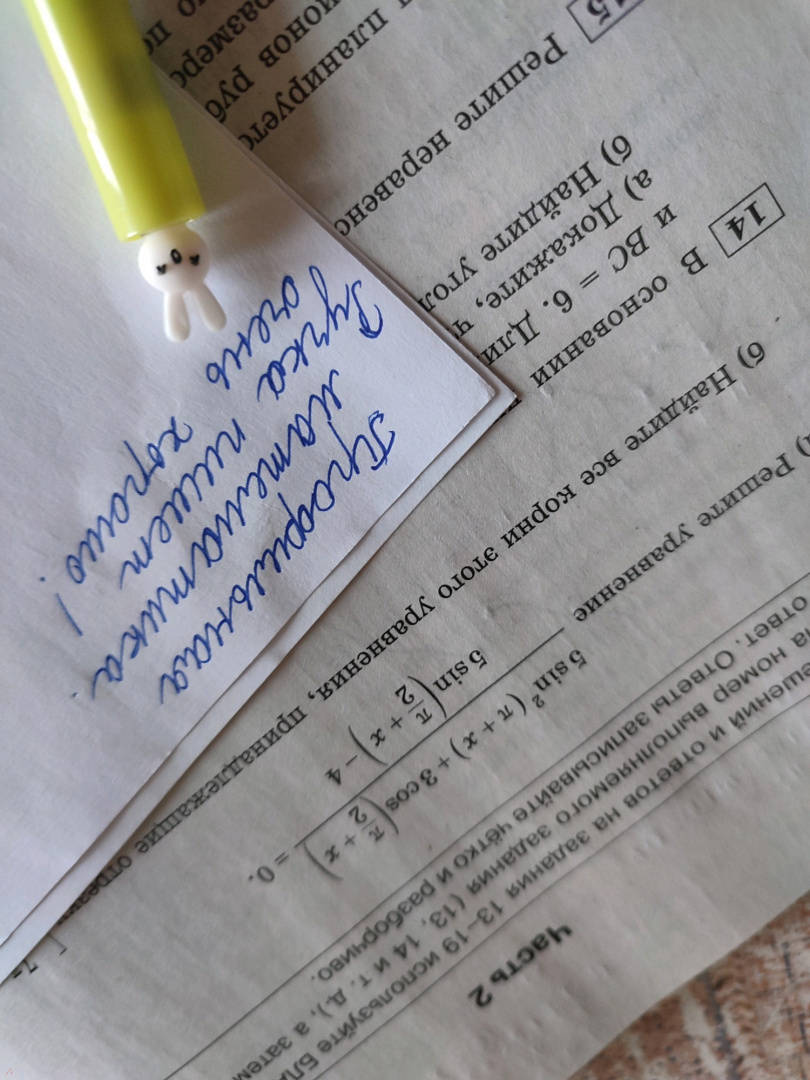 Часть 2
13–19 используйте БЛА
ешений и ответов на задания
номер выполняемого задания (13, 14 и т. д.), а затем
ответ. Ответы записывайте чётко и разборчиво.
) Решите уравнение
5 sin²(π + x) + 3 cos(π/2 + x)
5 sin(π/2 + x) − 4
= 0.
б) Найдите все корни этого уравнения, принадлежащие отрезку
14
В основании
и BC = 6.
а) Докажите, ч
б) Найдите угол
15
Решите неравенс
планируетс
Профильная
математика.
Ручка пишет
очень хорошо!